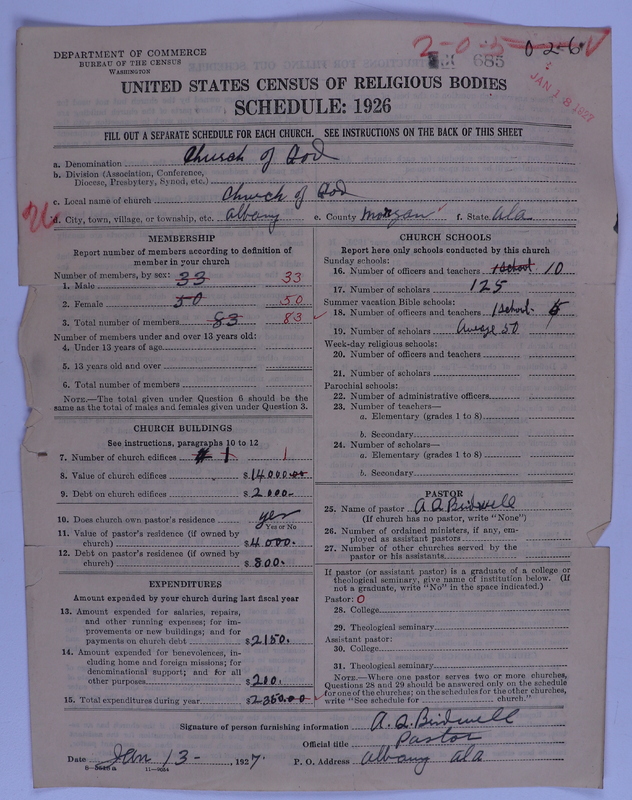 DEPARTMENT OF COMMERCE
BUREAU OF THE CENSUS
WASHINGTON
2-0-5
0-2-6
685
JAN 18 1927
UNITED STATES CENSUS OF RELIGIOUS BODIES
SCHEDULE: 1926
FILL OUT A SEPARATE SCHEDULE FOR EACH CHURCH. SEE INSTRUCTIONS ON THE BACK OF THIS SHEET
a. Denomination Church of God
b. Division (Association, Conference, Diocese, Presbytery, Synod, etc.)
c. Local name of church Church of God
d. City, town, village, or township, etc. Albany e. County Morgan f. State Ala
MEMBERSHIP
Report number of members according to definition of
member in your church
Number of members, by sex:
1. Male 33 33
2. Female 50 50
3. Total number of members 83 83
Number of members under and over 13 years old:
4. Under 13 years of age
5. 13 years old and over
6. Total number of members
NOTE.—The total given under Question 6 should be
the same as the total of males and females given under Question 3.
CHURCH BUILDINGS
See instructions, paragraphs 10 to 12
7. Number of church edifices # 1 1
8. Value of church edifices $14000.00
9. Debt on church edifices $2000.
10. Does church own pastor's residence yes
Yes or No
11. Value of pastor's residence (if owned by
church) $4000.
12. Debt on pastor's residence (if owned by
church) $800.
EXPENDITURES
Amount expended by your church during last fiscal year
13. Amount expended for salaries, repairs,
and other running expenses; for im-
provements or new buildings; and for
payments on church debt $2150.
14. Amount expended for benevolences, in-
cluding home and foreign missions; for
denominational support; and for all
other purposes $200.
15. Total expenditures during year $2350.00
CHURCH SCHOOLS
Report here only schools conducted by this church
Sunday schools:
16. Number of officers and teachers 1 School 10
17. Number of scholars 125
Summer vacation Bible schools:
18. Number of officers and teachers 1 School. 5
19. Number of scholars Average 50
Week-day religious schools:
20. Number of officers and teachers
21. Number of scholars
Parochial schools:
22. Number of administrative officers
23. Number of teachers—
a. Elementary (grades 1 to 8)
b. Secondary
24. Number of scholars—
a. Elementary (grades 1 to 8)
b. Secondary
PASTOR
25. Name of pastor A Q Bridwell
(If church has no pastor, write "None")
26. Number of ordained ministers, if any, em-
ployed as assistant pastors
27. Number of other churches served by the
pastor or his assistants
If pastor (or assistant pastor) is a graduate of a college or
theological seminary, give name of institution below. (If
not a graduate, write "No" in the space indicated.)
Pastor: 0
28. College
29. Theological seminary
Assistant pastor:
30. College
31. Theological seminary
NOTE.—Where one pastor serves two or more churches,
Questions 28 and 29 should be answered only on the schedule
for one of the churches; on the schedules for the other churches,
write "See schedule for church."
Signature of person furnishing information A. Q. Bridwell
Official title Pastor
Date Jan 13- , 1927. P. O. Address Albany Ala